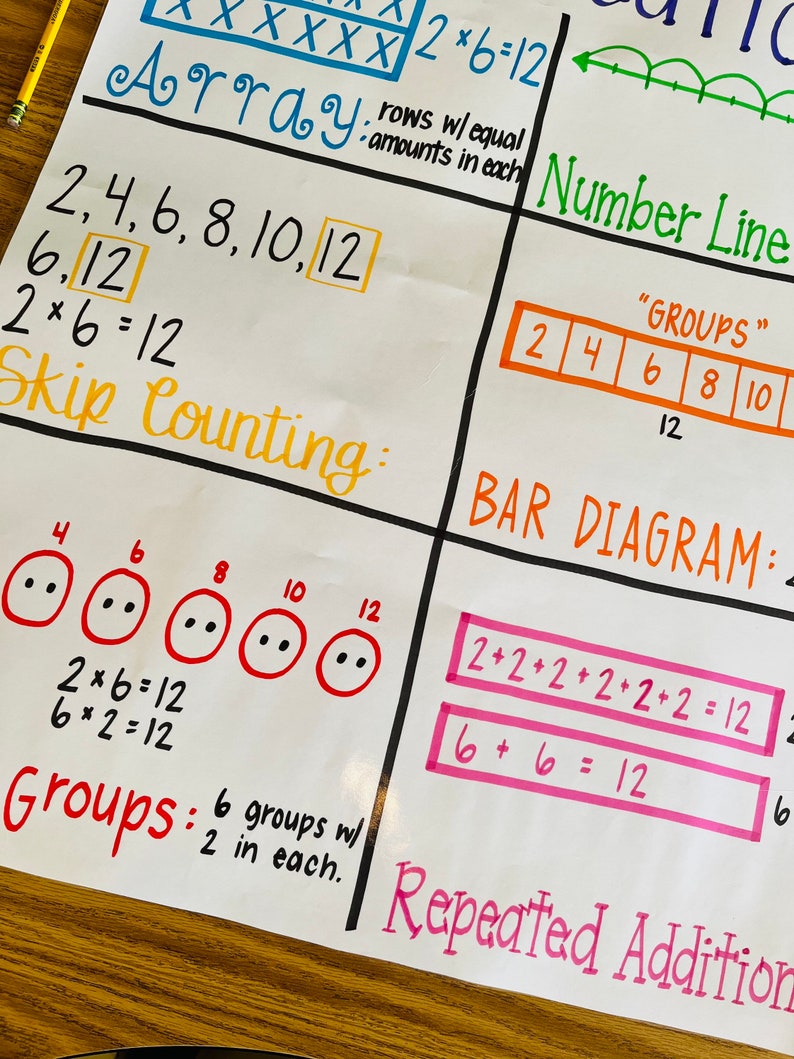 x x x x x x
2 x 6 = 12
Array: rows w/ equal
amounts in each
Number Line
2, 4, 6, 8, 10, 12
6, 12
2 x 6 = 12
Skip Counting:
"GROUPS"
2 4 6 8 10
12
BAR DIAGRAM:
4 6 8 10 12
2 x 6 = 12
6 x 2 = 12
Groups: 6 groups w/
2 in each.
2+2+2+2+2+2 = 12
6 + 6 = 12
6
Repeated Addition